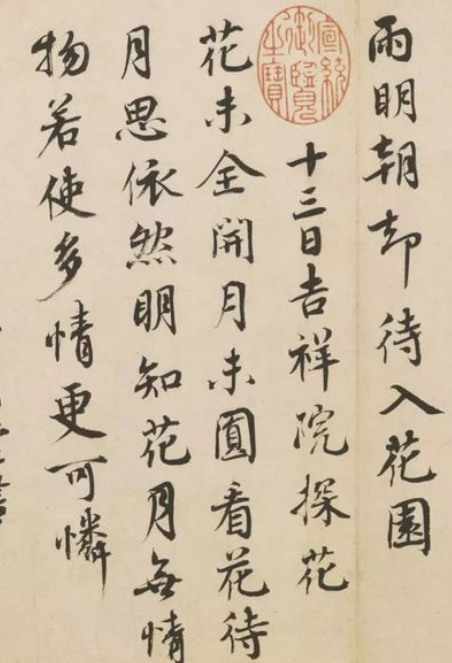 雨明朝却待入花園
宣統御覽之寶
十三日吉祥院探花
花未全開月未圓看花待
月思依然明知花月無情
物若使多情更可憐